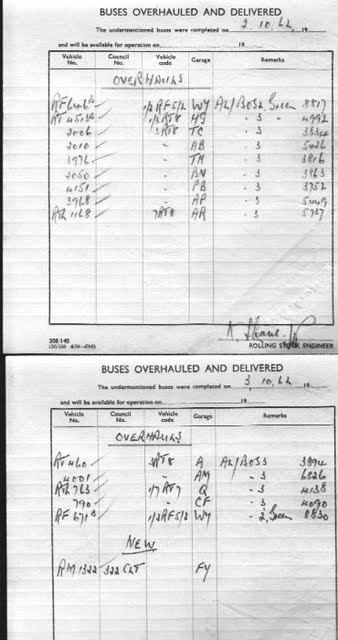 BUSES OVERHAULED AND DELIVERED
The undermentioned buses were completed on 2.10.62 19
and will be available for operation on 19
Vehicle No. Council No. Vehicle code Garage Remarks
OVERHAULS
1/2 RF5/2 WY AL/BOS2, Green 8817
RT 4513 1/3RT8 HG - 3 - 4992
2006 3RT8 TC - 3 3334
2010 - AB - 3 5026
3976 - TH - 3 3816
2050 - BN - 3 3863
4151 - PB - 3 3752
3968 - AP - 3 5009
1168 7RT8 AR - 3 5757
308/140
ROLLING STOCK ENGINEER
BUSES OVERHAULED AND DELIVERED
The undermentioned buses were completed on 3.10.62 19
and will be available for operation on 19
Vehicle No. Council No. Vehicle code Garage Remarks
OVERHAULS
RT 460 3RT8 A AL/BOS3 3894
4001 - AM - 3 6826
763 1/7 RT7 Q - 3 4138
790 - CF - 3 4090
RF 671 1/2RF5/2 WY - 2, Green 8830
NEW
RM 1322 322 CLT FY